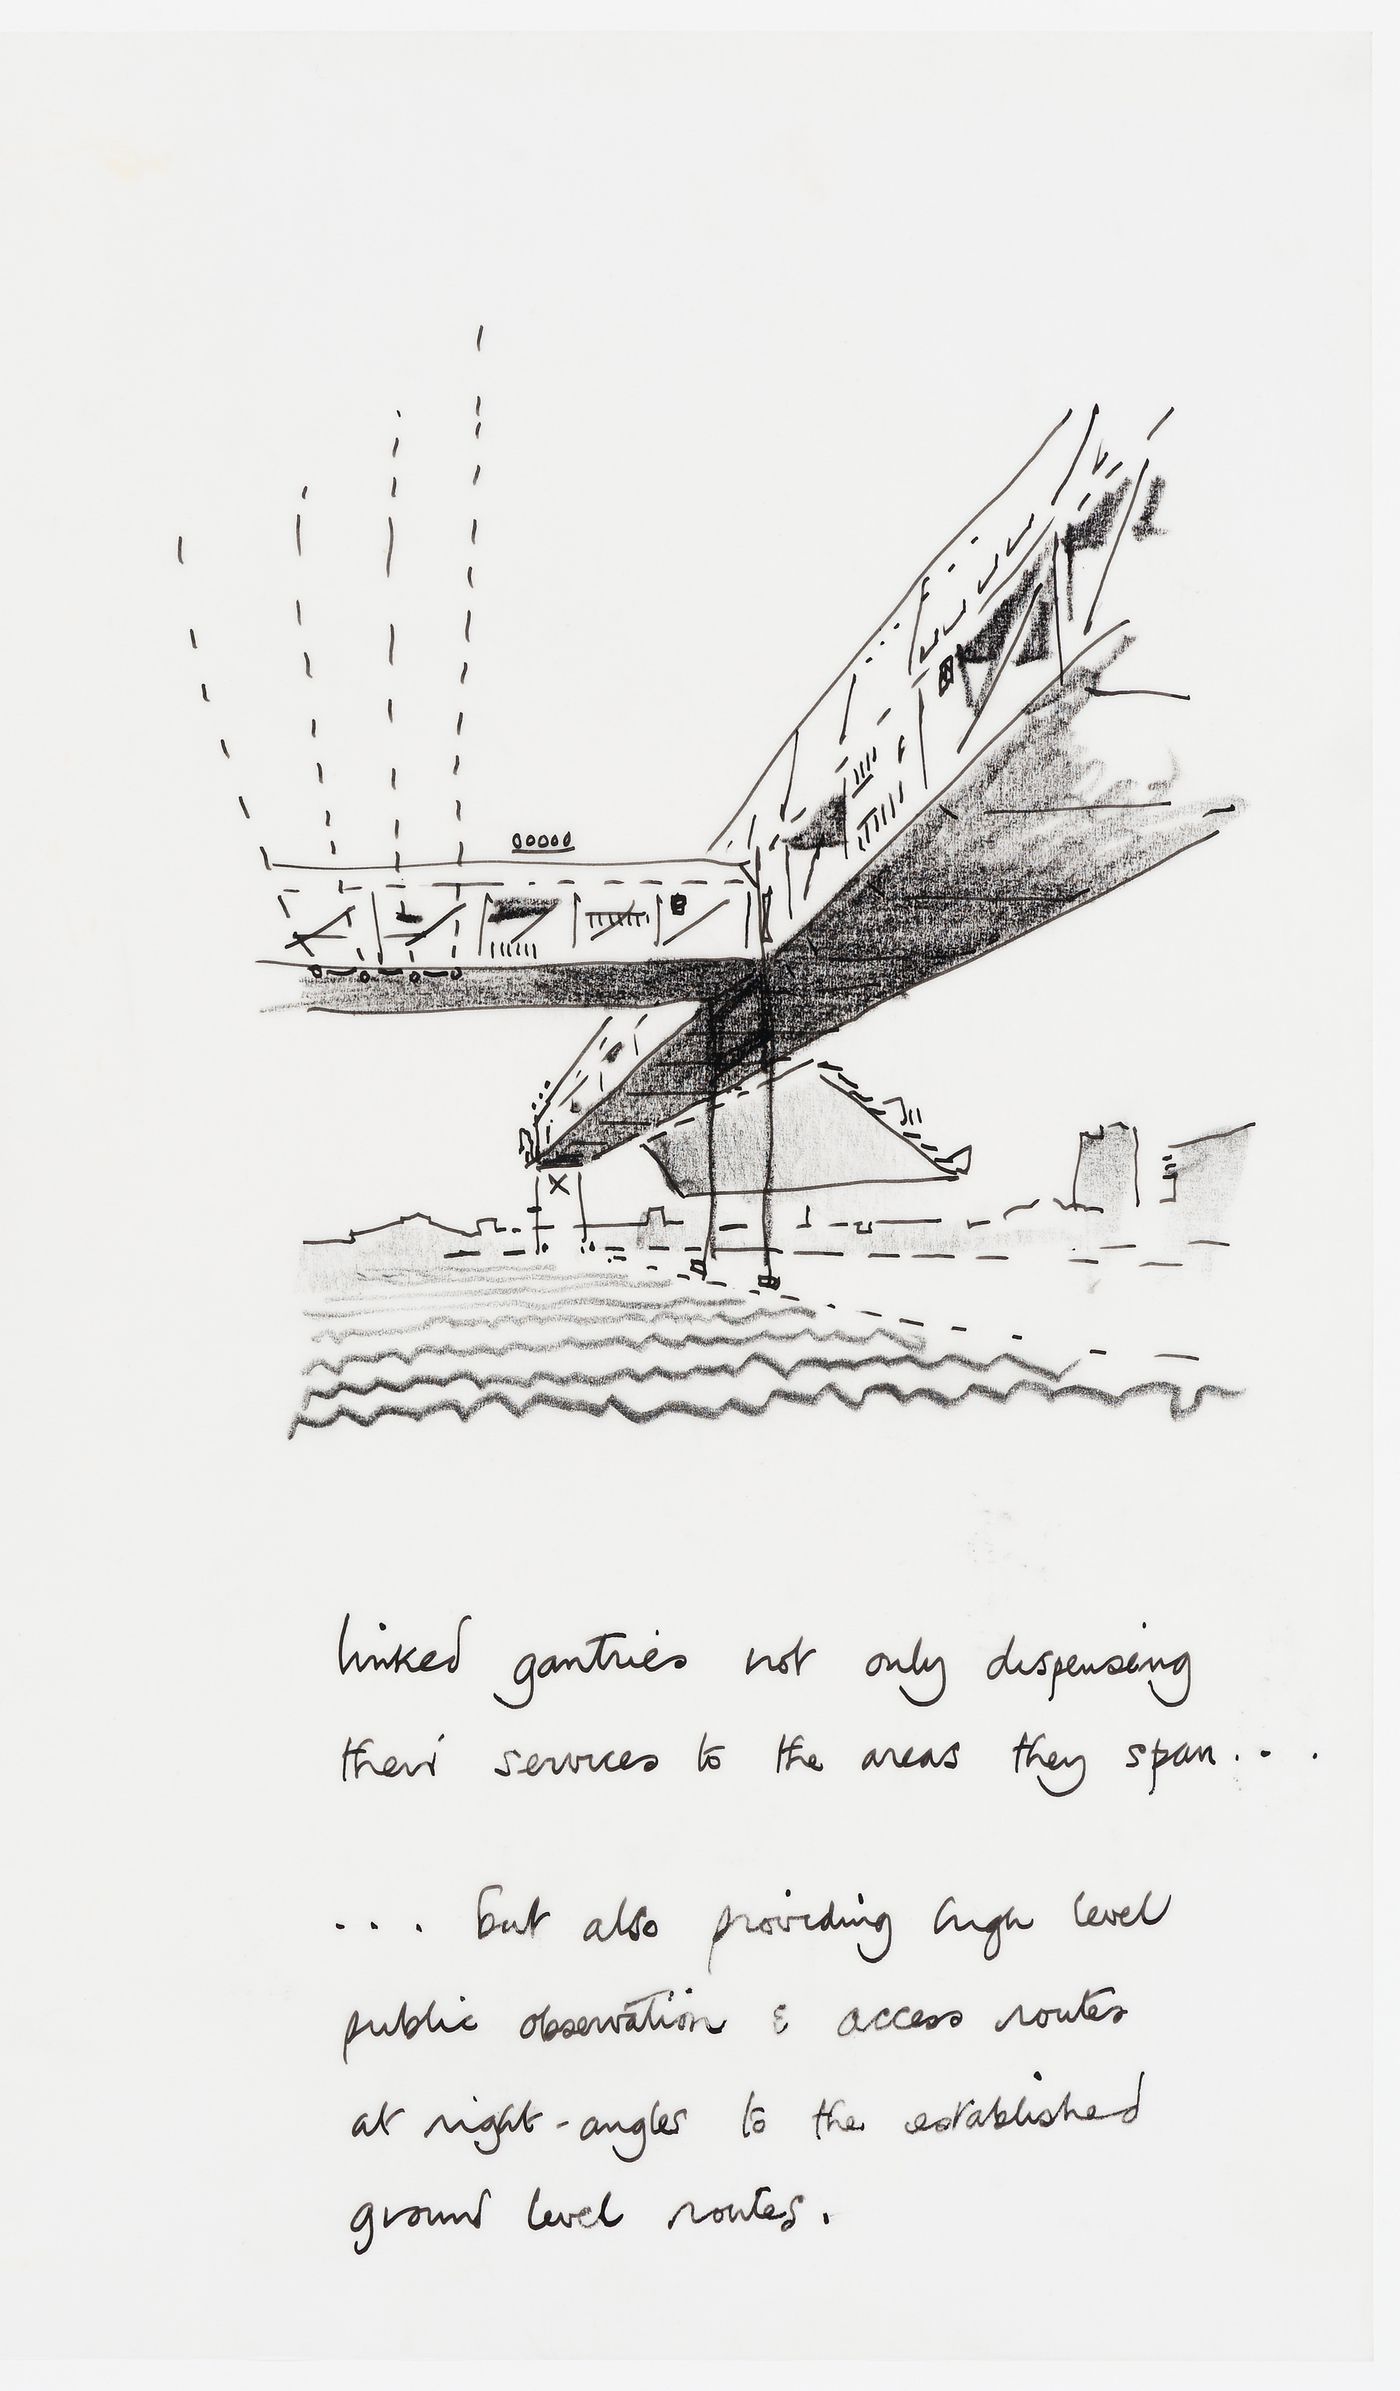 linked gantries not only dispensing
their services to the areas they span...
.... but also providing high level
public observation & access routes
at right-angles to the established
ground level routes.